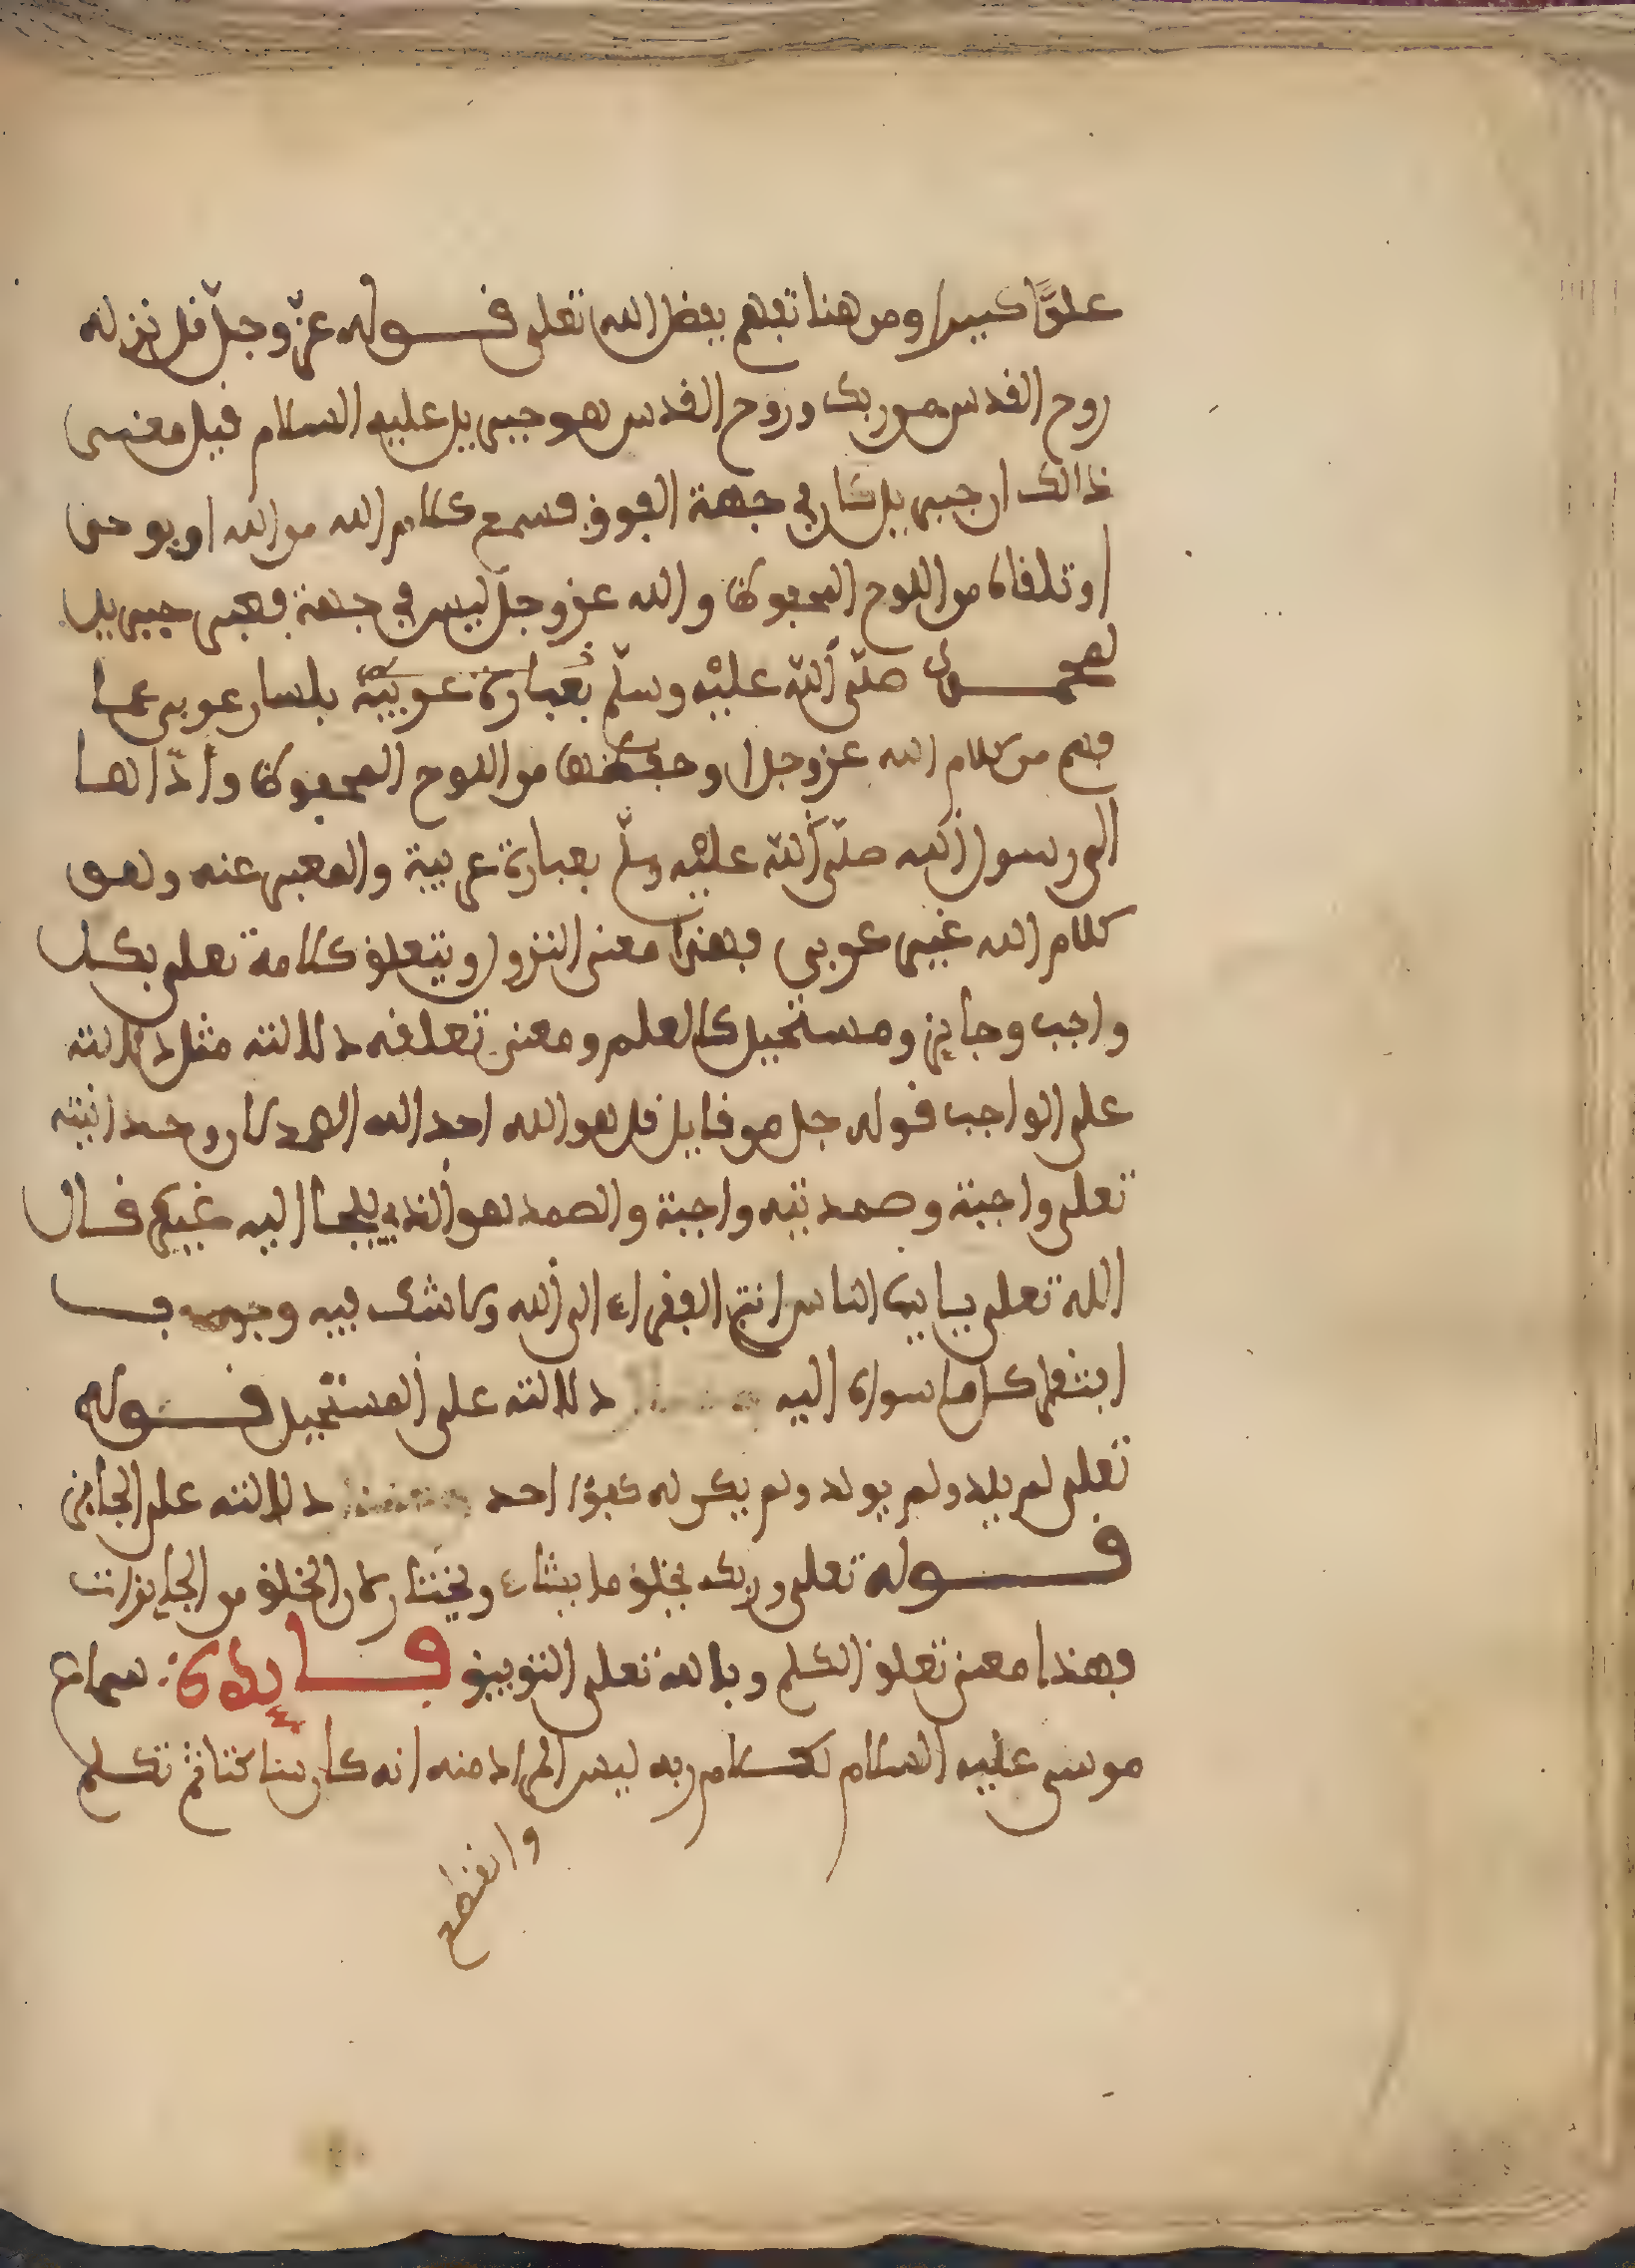 علوًّا كبيرا ومن هنا تفهم بفضل الله تعلى قوله عزّ وجلّ قل نزله
روح القدس من ربك وروح القدس هو جبريل عليه السلام قيل معنى
ذالك ان جبريل كان في جهة الفوق فسمع كلام الله من الله او يوحى
او تلقاه من اللوح المحفوظ والله عز وجل ليس في جهة فعبر جبريل
لمحمد صلّى الله عليْه وسلّم بعبارة عربيّة بلسان عربي عما
فهم من كلام الله عز وجل او حفظها من اللوح المحفوظ وأدّاها
الى رسول الله صلّى الله عليْه وسلّم بعبارة عربية والمعبر عنه وهو
كلام الله غير عربي فهذا معنى النزول ويتعلق كلامه تعلى بكل
واجب وجايز ومستحيل كالعلم ومعنى تعلقه دلالته مثل دلالته
على الواجب قوله جل من قايل قل هو الله احد الله الصمد لان وحدانيته
تعلى واجبة وصمديته واجبة والصمد هو الذي يلجا اليه غيره قال
الله تعلى يايها الناس انتم الفقراء الى الله ولا شك فيه وجو با
افتقر كل ما سواه اليه دلالته على المستحيل قوله
تعلى لم يلد ولم يولد ولم يكن له كفؤا احد دلالته على الجايز
قوله تعلى وربك يخلق ما يشاء ويختار لان الخلق من الجايزات
فهذا معنى تعلق الكلم وبالله تعلى التوفيق فايدة سماع
موسى عليه السلام لكلام ربه ليس المراد منه انه كان ساكتا ثم تكلم
وانقطع